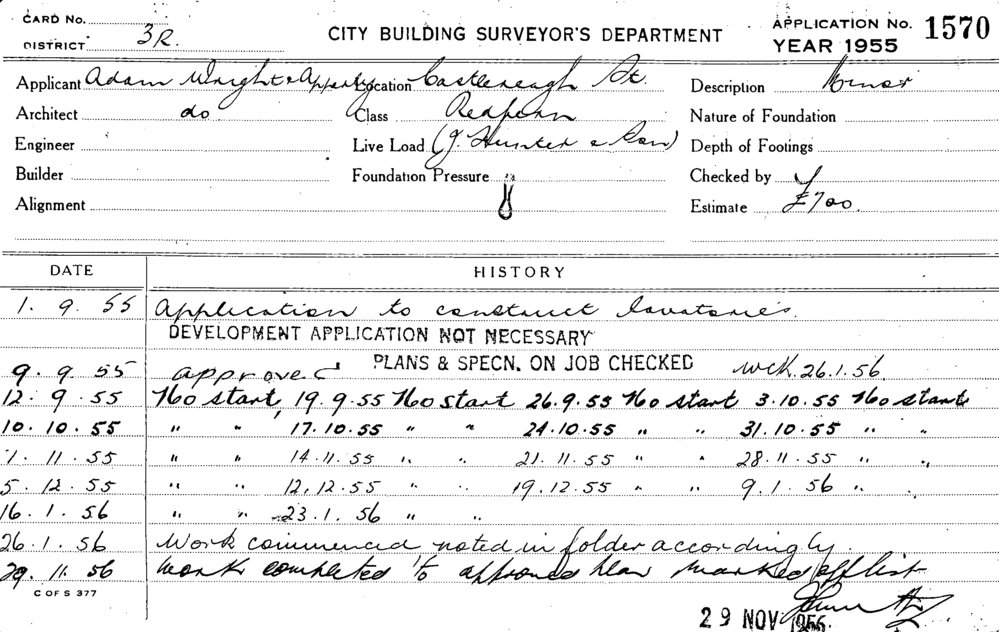 CARD No.
DISTRICT 3R.
CITY BUILDING SURVEYOR'S DEPARTMENT
APPLICATION No. 1570
YEAR 1955
Applicant Adam Wright & Apperly Location Castlereagh St. Description Minor
Architect do Class Redfern Nature of Foundation
Engineer Live Load (J. Hunter & Son) Depth of Footings
Builder Foundation Pressure " Checked by
Alignment Estimate £700.
DATE HISTORY
1. 9. 55 Application to construct lavatories.
DEVELOPMENT APPLICATION NOT NECESSARY
PLANS & SPECN. ON JOB CHECKED 26.1.56.
9. 9. 55 approved
12. 9. 55 No start, 19.9.55 No start 26.9.55 No start 3.10.55 No start
10. 10. 55 " " 17.10.55 " " 24.10.55 " " 31.10.55 " "
7. 11. 55 " " 14.11.55 " " 21.11.55 " " 28.11.55 " "
5. 12. 55 " " 12.12.55 " " 19.12.55 " " 9.1.56 " "
16. 1. 56 " " 23.1.56 " "
26. 1. 56 Work commenced noted in folder accordingly.
29. 11. 56 Work completed to approved plan marked off list
C OF S 377
29 NOV 1956